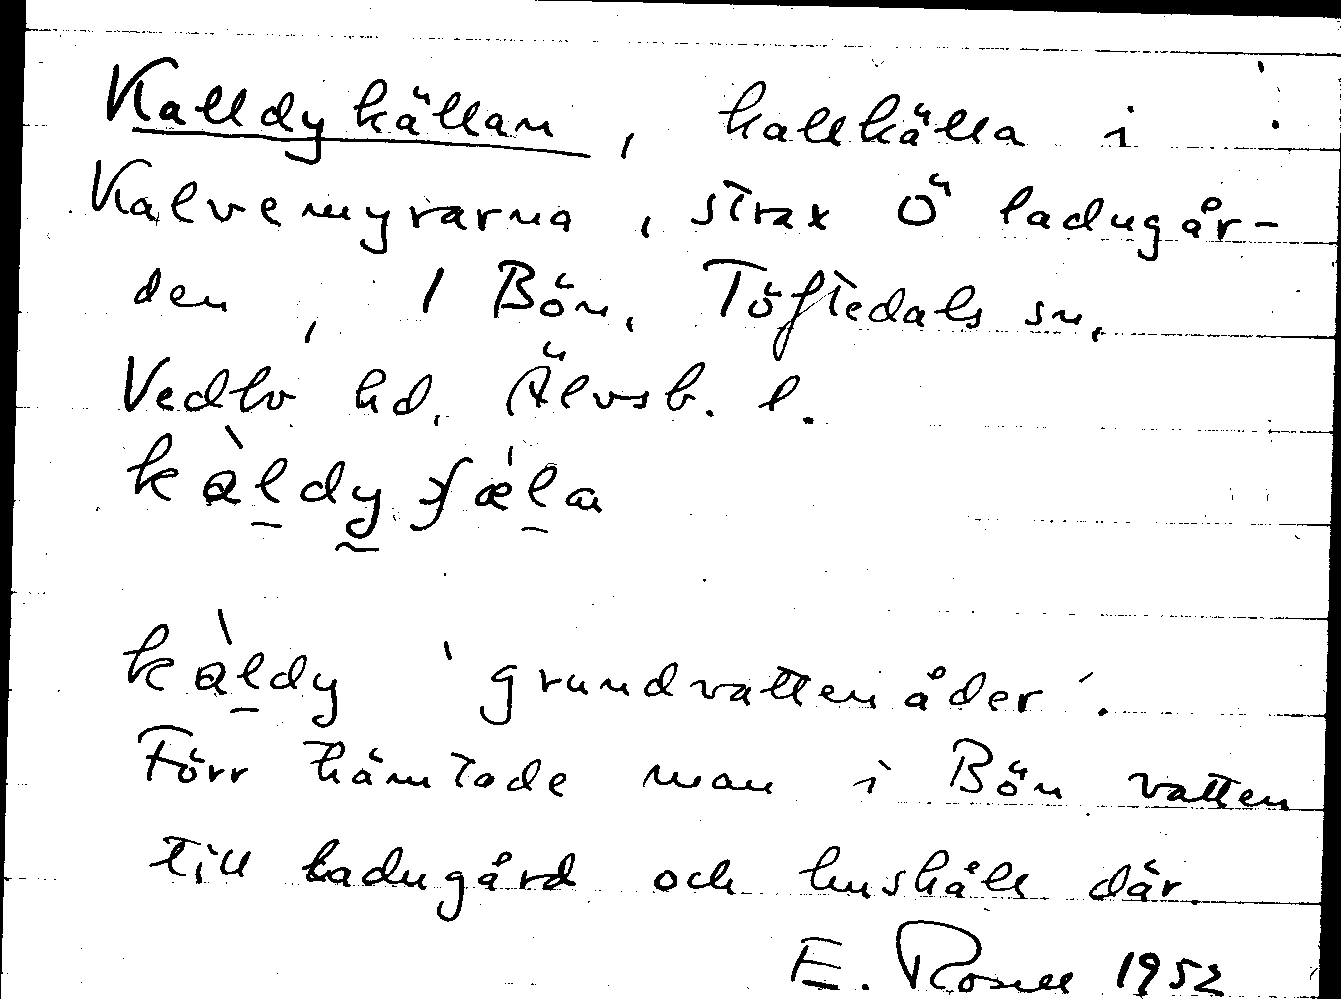 Kalldykällan, kallkälla i
Kalvemyrarna, strax Ö ladugår-
den, 1 Bön, Töftedals sn,
Vedbo hd, Älvsb. l.
kàldy
kàldy 'grundvattenåder'.
Förr hämtade man i Bön vatten
till ladugård och hushåll där.
E. Rosell 1952